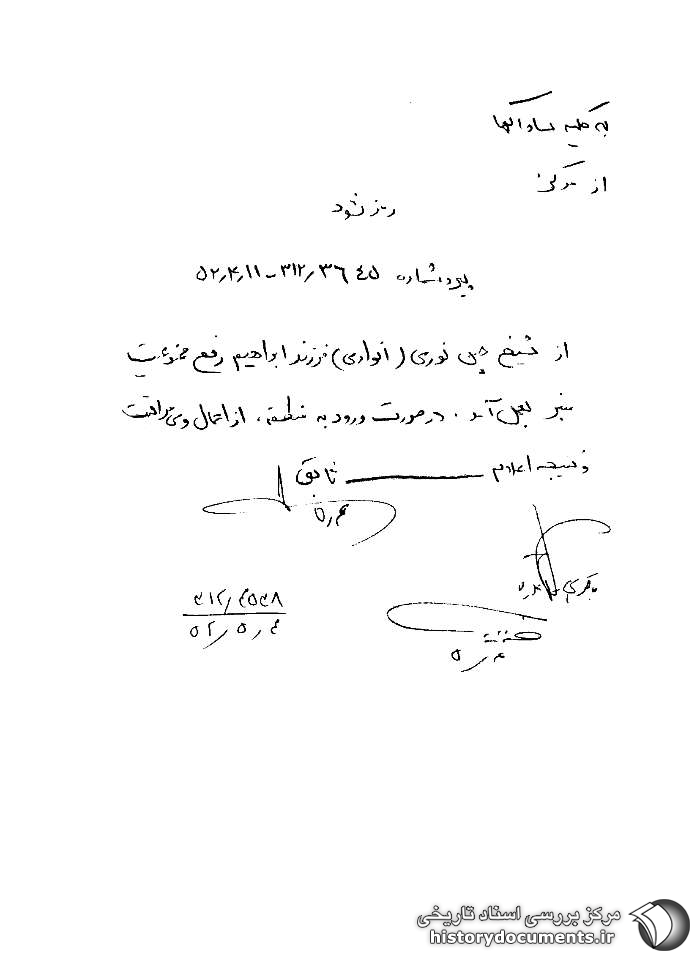 به کلیه ساواکها
از مرکز
رمز شود
پیرو شماره ۳۱۲/۳۶۴۵ - ۵۲/۴/۱۱
از شیخ نوری (انواری) فرزند ابراهیم رفع ممنوعیت
منبر بعمل آمد. در صورت ورود به منطقه، از اعمال وی مراقبت
و نتیجه اعلام ثابتی
۵/۴
۳۱۲/۴۵۳۸
۵۲/۵/۴
۵/۴
مرکز بررسی اسناد تاریخی
historydocuments.ir